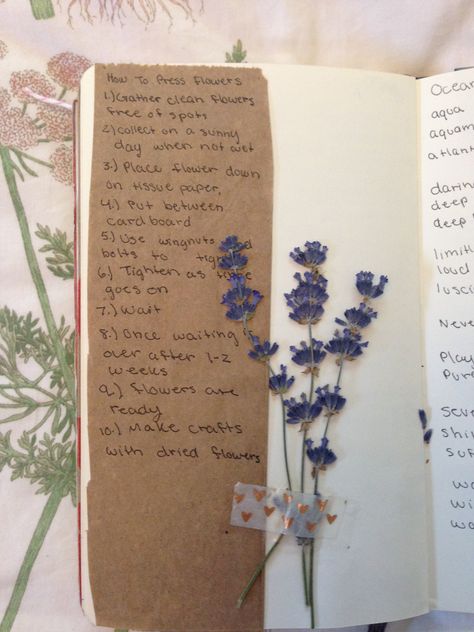 How To Press Flowers
1.) Gather clean flowers
free of spots
2.) collect on a sunny
day when not wet
3.) Place flower down
on tissue paper,
4.) Put between
cardboard
5.) Use wingnuts
bolts to
6.) Tighten as
goes on
7.) Wait
8.) Once waiting is
over after 1-2
weeks
9.) flowers are
ready
10.) Make crafts
with dried flowers
Ocean
aqua
aquam
atlant
daring
deep
deep
limitl
loud
lusci
Never
Play
Pure
Seve
shi
su
wa
wi
wa